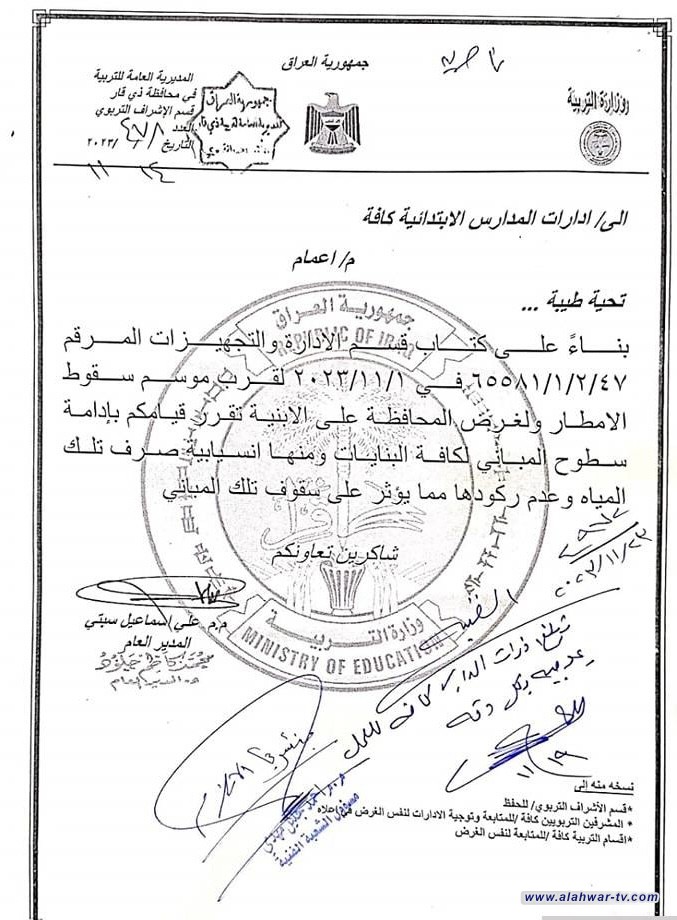 جمهورية العراق
وزارة التربية
المديرية العامة للتربية
في محافظة ذي قار
قسم الإشراف التربوي
العدد
التاريخ / /٢٠٢٣
الى/ ادارات المدارس الابتدائية كافة
م/ اعمام
تحية طيبة ...
بناءً على كتاب قسم الادارة والتجهيزات المرقم
٦٥٥٨١/١/٢/٤٧ في ٢٠٢٣/١١/١ لقرب موسم سقوط
الامطار ولغرض المحافظة على الابنية تقرر قيامكم بإدامة
سطوح المباني لكافة البنايات ومنها انسيابية صرف تلك
المياه وعدم ركودها مما يؤثر على سقوف تلك المباني
شاكرين تعاونكم
جمهورية العراق
REPUBLIC OF IRAQ
وزارة التربية
MINISTRY OF EDUCATION
م.م علي إسماعيل سبتي
المدير العام
٢٠٢٣/١١/٢٣
١١/١٩
مسؤول الشعبة الفنية
نسخه منه إلى
*قسم الأشراف التربوي/ للحفظ
* المشرفين التربويين كافة /للمتابعة وتوجية الادارات لنفس الغرض في اعلاه
*اقسام التربية كافة /للمتابعة لنفس الغرض
www.alahwar-tv.com